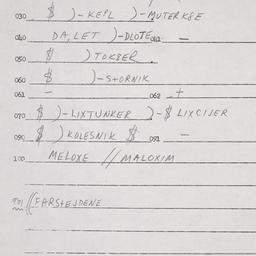 030 $ )-KEPL )-MUTERKSE
040 DA,LET )-DLOTE 041 -
050 $ ) TOKSER
060 $ )-STORNIK
061 - 062 +
070 $ )-LIXTUNKER )-$ LIXCIJER
090 $ ) KOLESNIK $ 091 -
100 MELOXE // MALOXIM
901 (( FARSTEJDENE